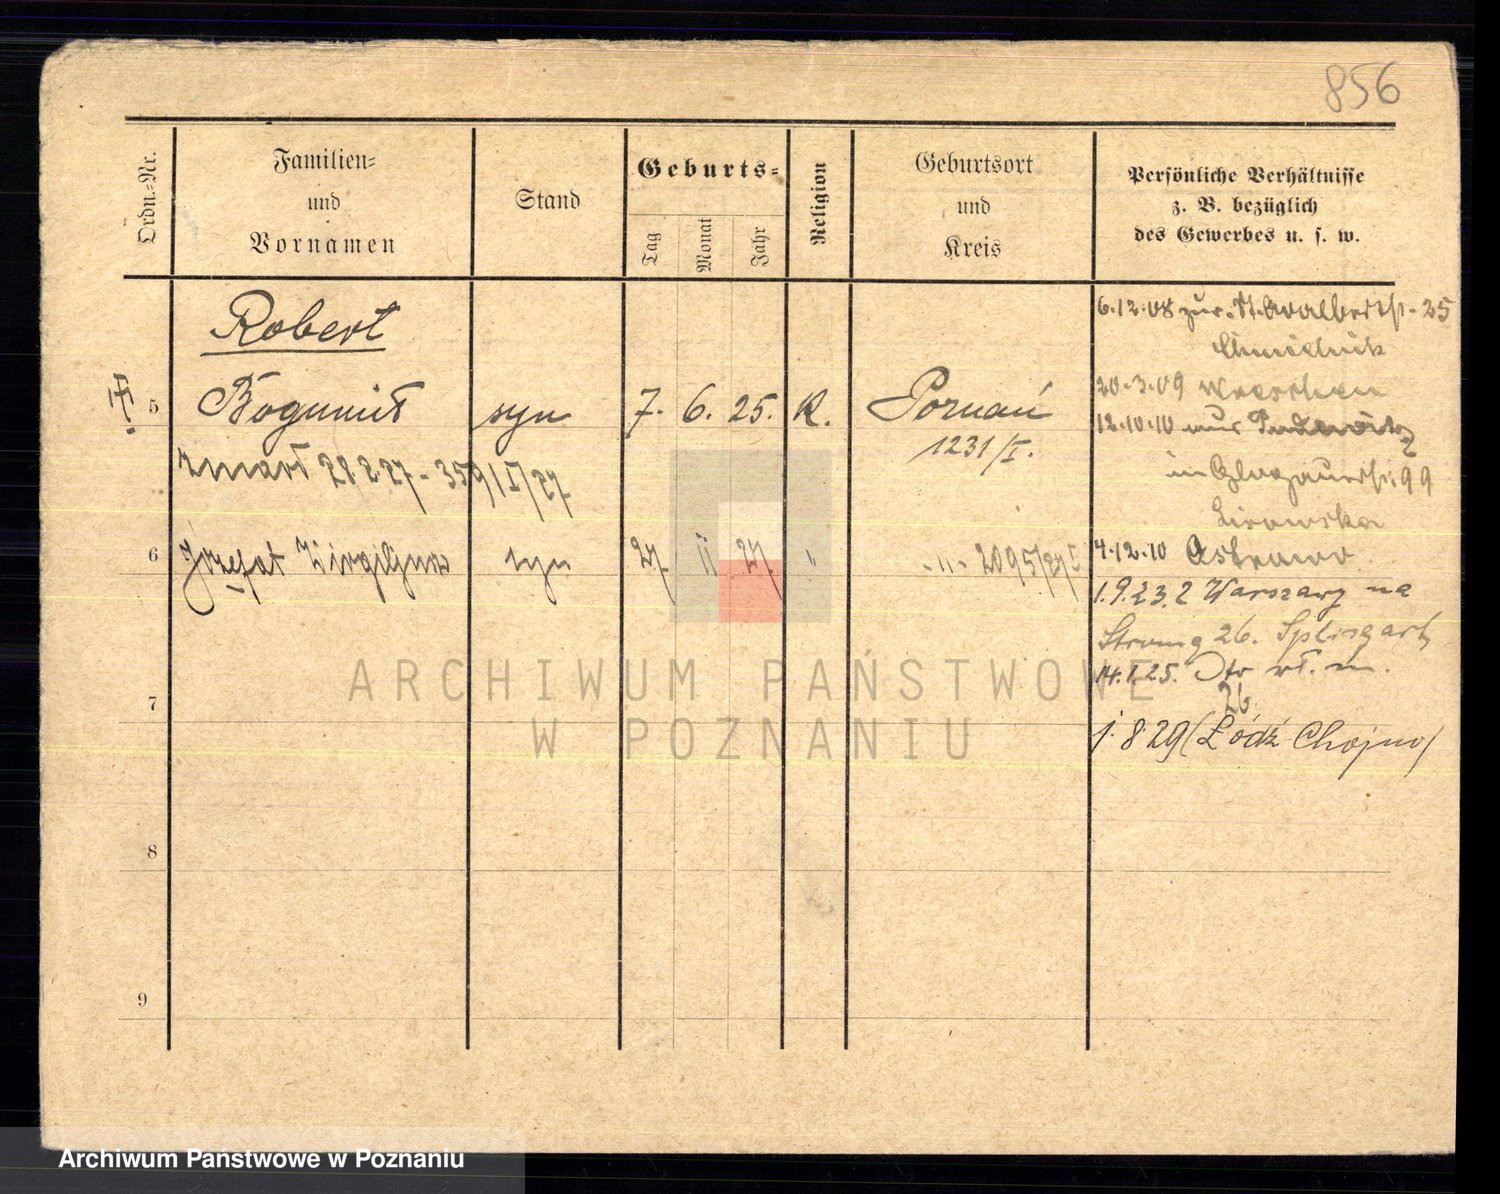 856
Ordn.=Nr.
Familien=
und
Vornamen
Stand
Geburts=
Tag
Monat
Jahr
Religion
Geburtsort
und
Kreis
Persönliche Verhältnisse
z. B. bezüglich
des Gewerbes u. s. w.
Robert
5 Bogumił syn 7. 6. 25. K. Poznań
1231/I.
zmarł 28.2.27 - 359/I/27
6 Józefat Wirgiljusz syn 27 11 27 " - " - 2095/27 I
7
8
9
6.12.08 zur. St. Adalbertst. 25
Chmielnik
20.3.09 Wreschen
12.10.10 aus Pudewitz
in Glogauerstr. 99
4.12.10 Ostrowo
1.9.23. z Warszawy na
26.
14.1.25. wł. m.
26
1.8.29 (Łódź Chojny)
ARCHIWUM PAŃSTWOWE
W POZNANIU
Archiwum Państwowe w Poznaniu